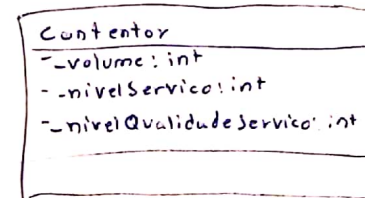 Contentor
- _volume: int
- _nivelServico: int
- _nivelQualidadeServico: int